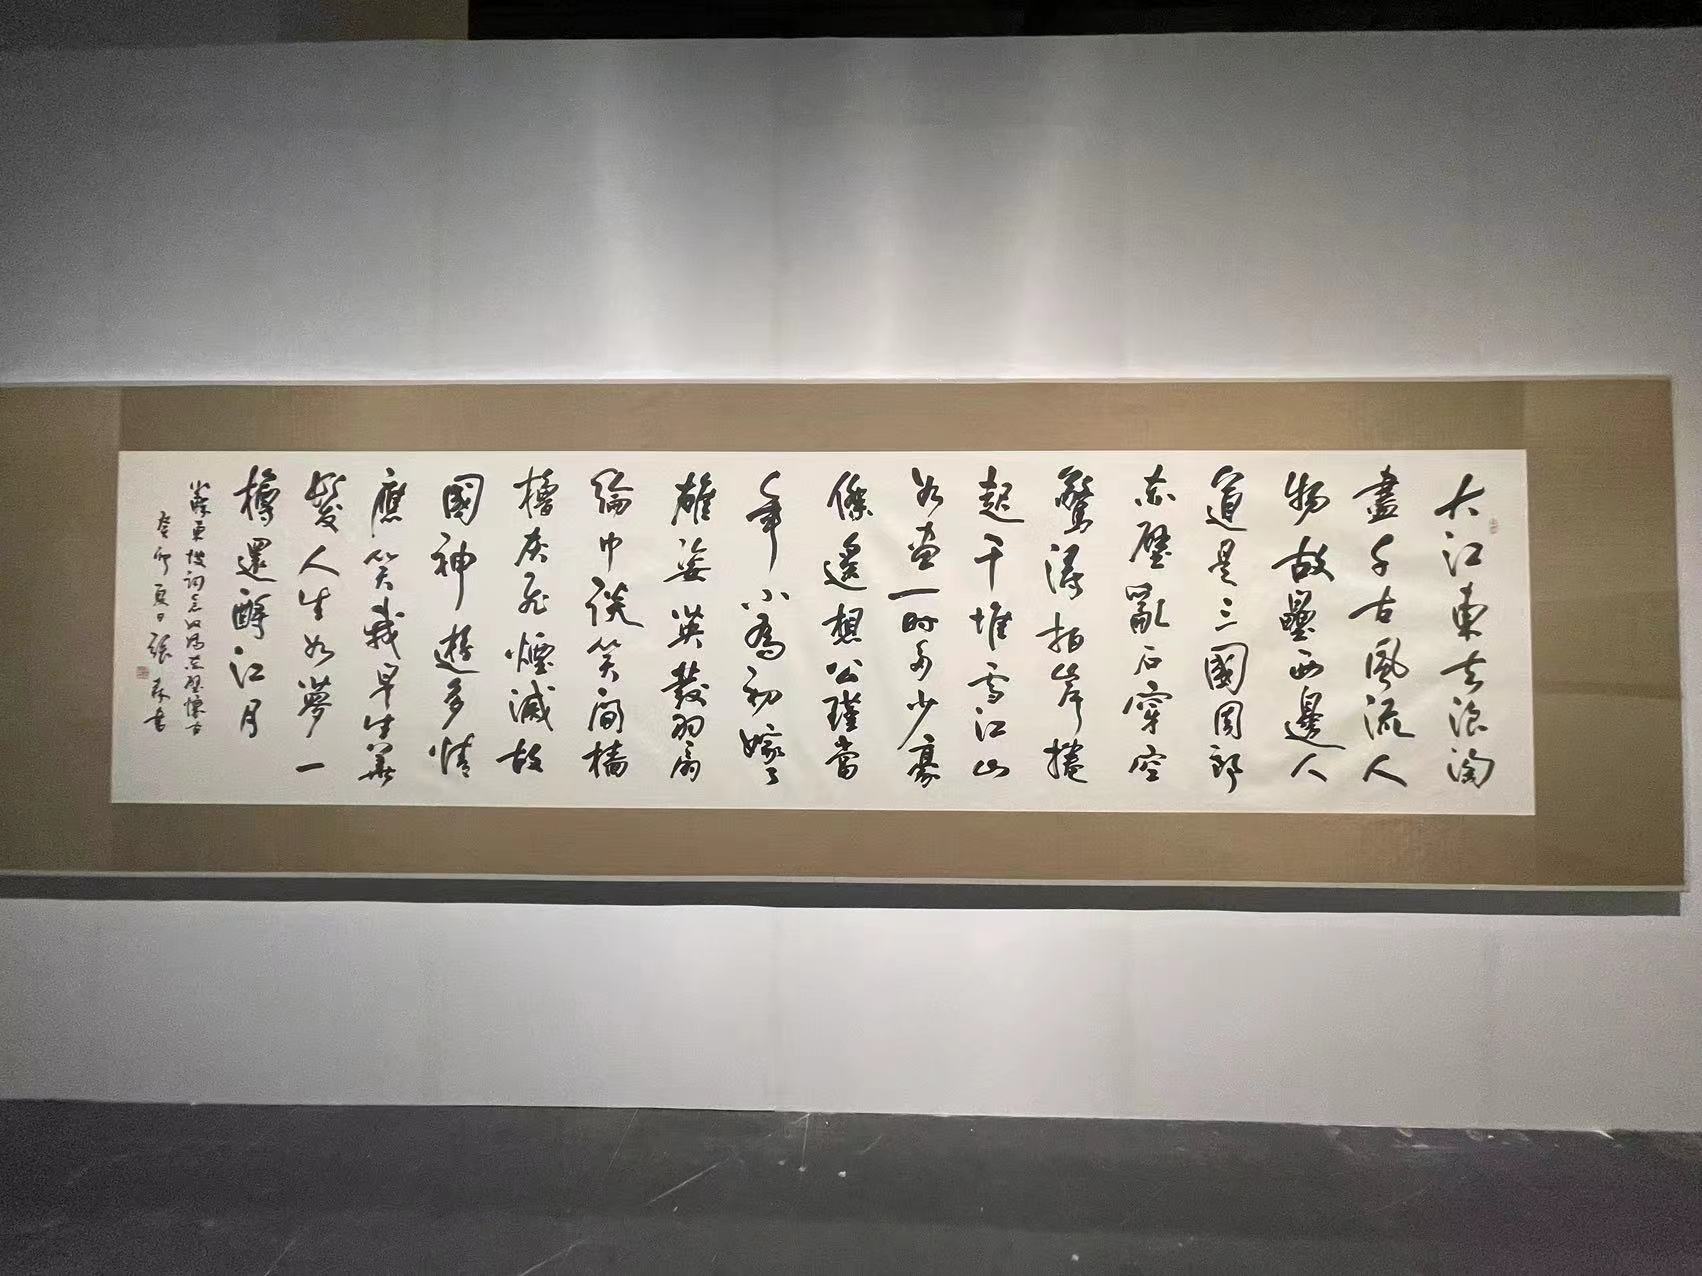 大江東去浪淘
盡千古風流人
物故壘西邊人
道是三國周郎
赤壁亂石穿空
驚濤拍岸捲
起千堆雪江山
如畫一時多少豪
傑遙想公瑾當
年小喬初嫁了
雄姿英發羽扇
綸巾談笑間檣
櫓灰飛煙滅故
國神遊多情
應笑我早生華
髮人生如夢一
樽還酹江月
蘇東坡詞念奴嬌赤壁懷古
癸卯夏日張森書